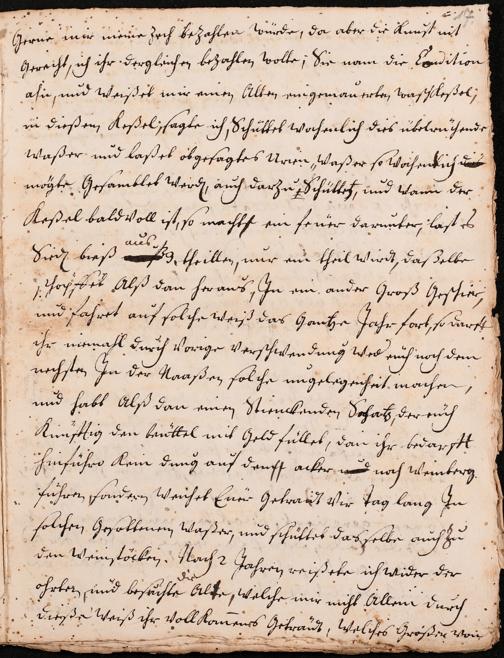 Gerne mir meine Zech bezahlen würde, da aber die Kunst nit
Gerecht, ich ihr dergleichen bezahlen wolte; Sie nam die Condition
ahn, und weißet mir einen Alten eingemauerten waschkeßel;
in dießen Keßel, sagte ich, Schüttet wochenlich das übelrüchende
waßer und laßet obgesagtes Urin, waßer so wochentlich
mögte Gesamblet werd, auch darzu Schüttet, und wann der
Keßel bald voll ist, so machet ein feüer darunter, last es
Sied bieß aus 3 theillen, nur ein theil wird, daßelbe
schöpffet Alß dan heraus, In ein ander Groß Geschier,
und fahret auf solche weiß das Gantze Jahr fort, so darfft
ihr niemahl durch vorige verschwendung weder euch noch dem
nechsten In der Naaßen solche ungelegenheit machen,
und habt Alß dan einen Stinckenden Schatz, der euch
Künfftig den beüttel mit Geld füllet, dan ihr bedarfft
hinführo kein dung auf denen acker noch weinberg
führen sondern weichet Euer Getraidt vir tag lang In
solchen Gesottenen waßer, und schüttet dasselbe auch zu
den weinstöcken. Nach 2 Jahren reißete ich wider der
ohrten, und besuchte die Alte, welche mir nicht Allein durch
dieße weiß ihr vollkommenes Getraidt, welches Größer von